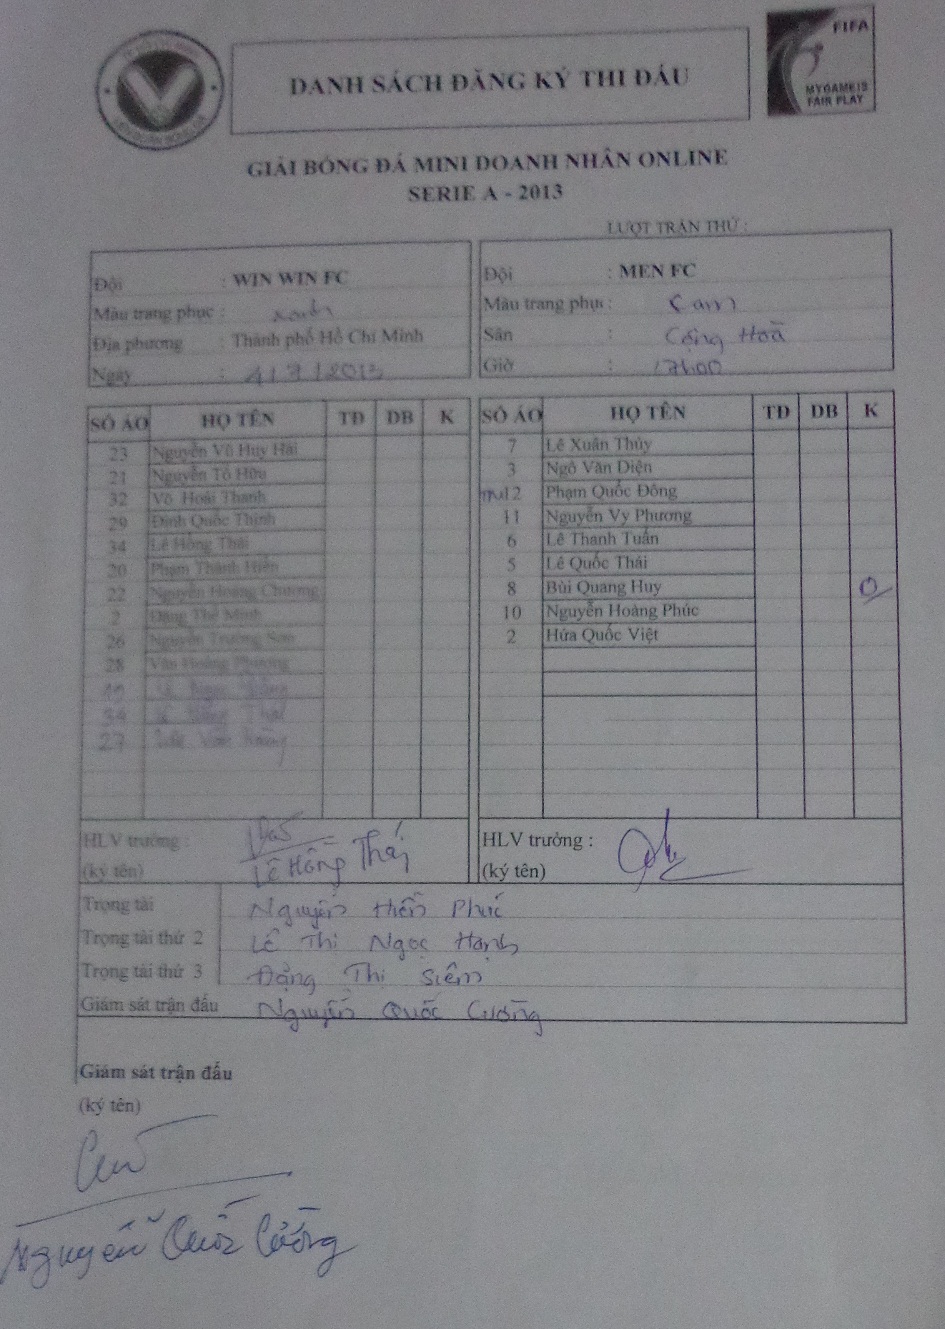 FIFA
MY GAME IS
FAIR PLAY
DANH SÁCH ĐĂNG KÝ THI ĐẤU
GIẢI BÓNG ĐÁ MINI DOANH NHÂN ONLINE
SERIE A - 2013
LƯỢT TRẬN THỨ :
Đội : WIN WIN FC
Màu trang phục : xanh
Địa phương : Thành phố Hồ Chí Minh
Ngày : 4/7/2013
Đội : MEN FC
Màu trang phụ : Cam
Sân : Cộng Hoà
Giờ : 17h00
SỐ ÁO HỌ TÊN TĐ DB K
23 Nguyễn Vũ Huy Hải
21 Nguyễn Tô Hữu
32 Võ Hoài Thanh
29 Đinh Quốc Thịnh
34 Lê Hồng Thái
20 Phạm Thành Hiển
22 Nguyễn Hoàng Chương
2 Đặng Thế Minh
26 Nguyễn Trường Sơn
28 Văn Hoàng Phương
34 Lê Hồng Thái
27
SỐ ÁO HỌ TÊN TĐ DB K
7 Lê Xuân Thủy
3 Ngô Văn Diện
12 Phạm Quốc Đông
11 Nguyễn Vy Phương
6 Lê Thanh Tuấn
5 Lê Quốc Thái
8 Bùi Quang Huy
10 Nguyễn Hoàng Phúc
2 Hứa Quốc Việt
HLV trưởng :
(ký tên) Lê Hồng Thái
HLV trưởng :
(ký tên)
Trọng tài Nguyễn Hiền Phúc
Trọng tài thứ 2 Lê Thị Ngọc Hạnh
Trọng tài thứ 3 Đặng Thị Siêm
Giám sát trận đấu Nguyễn Quốc Cường
Giám sát trận đấu
(ký tên)
Nguyễn Quốc Cường